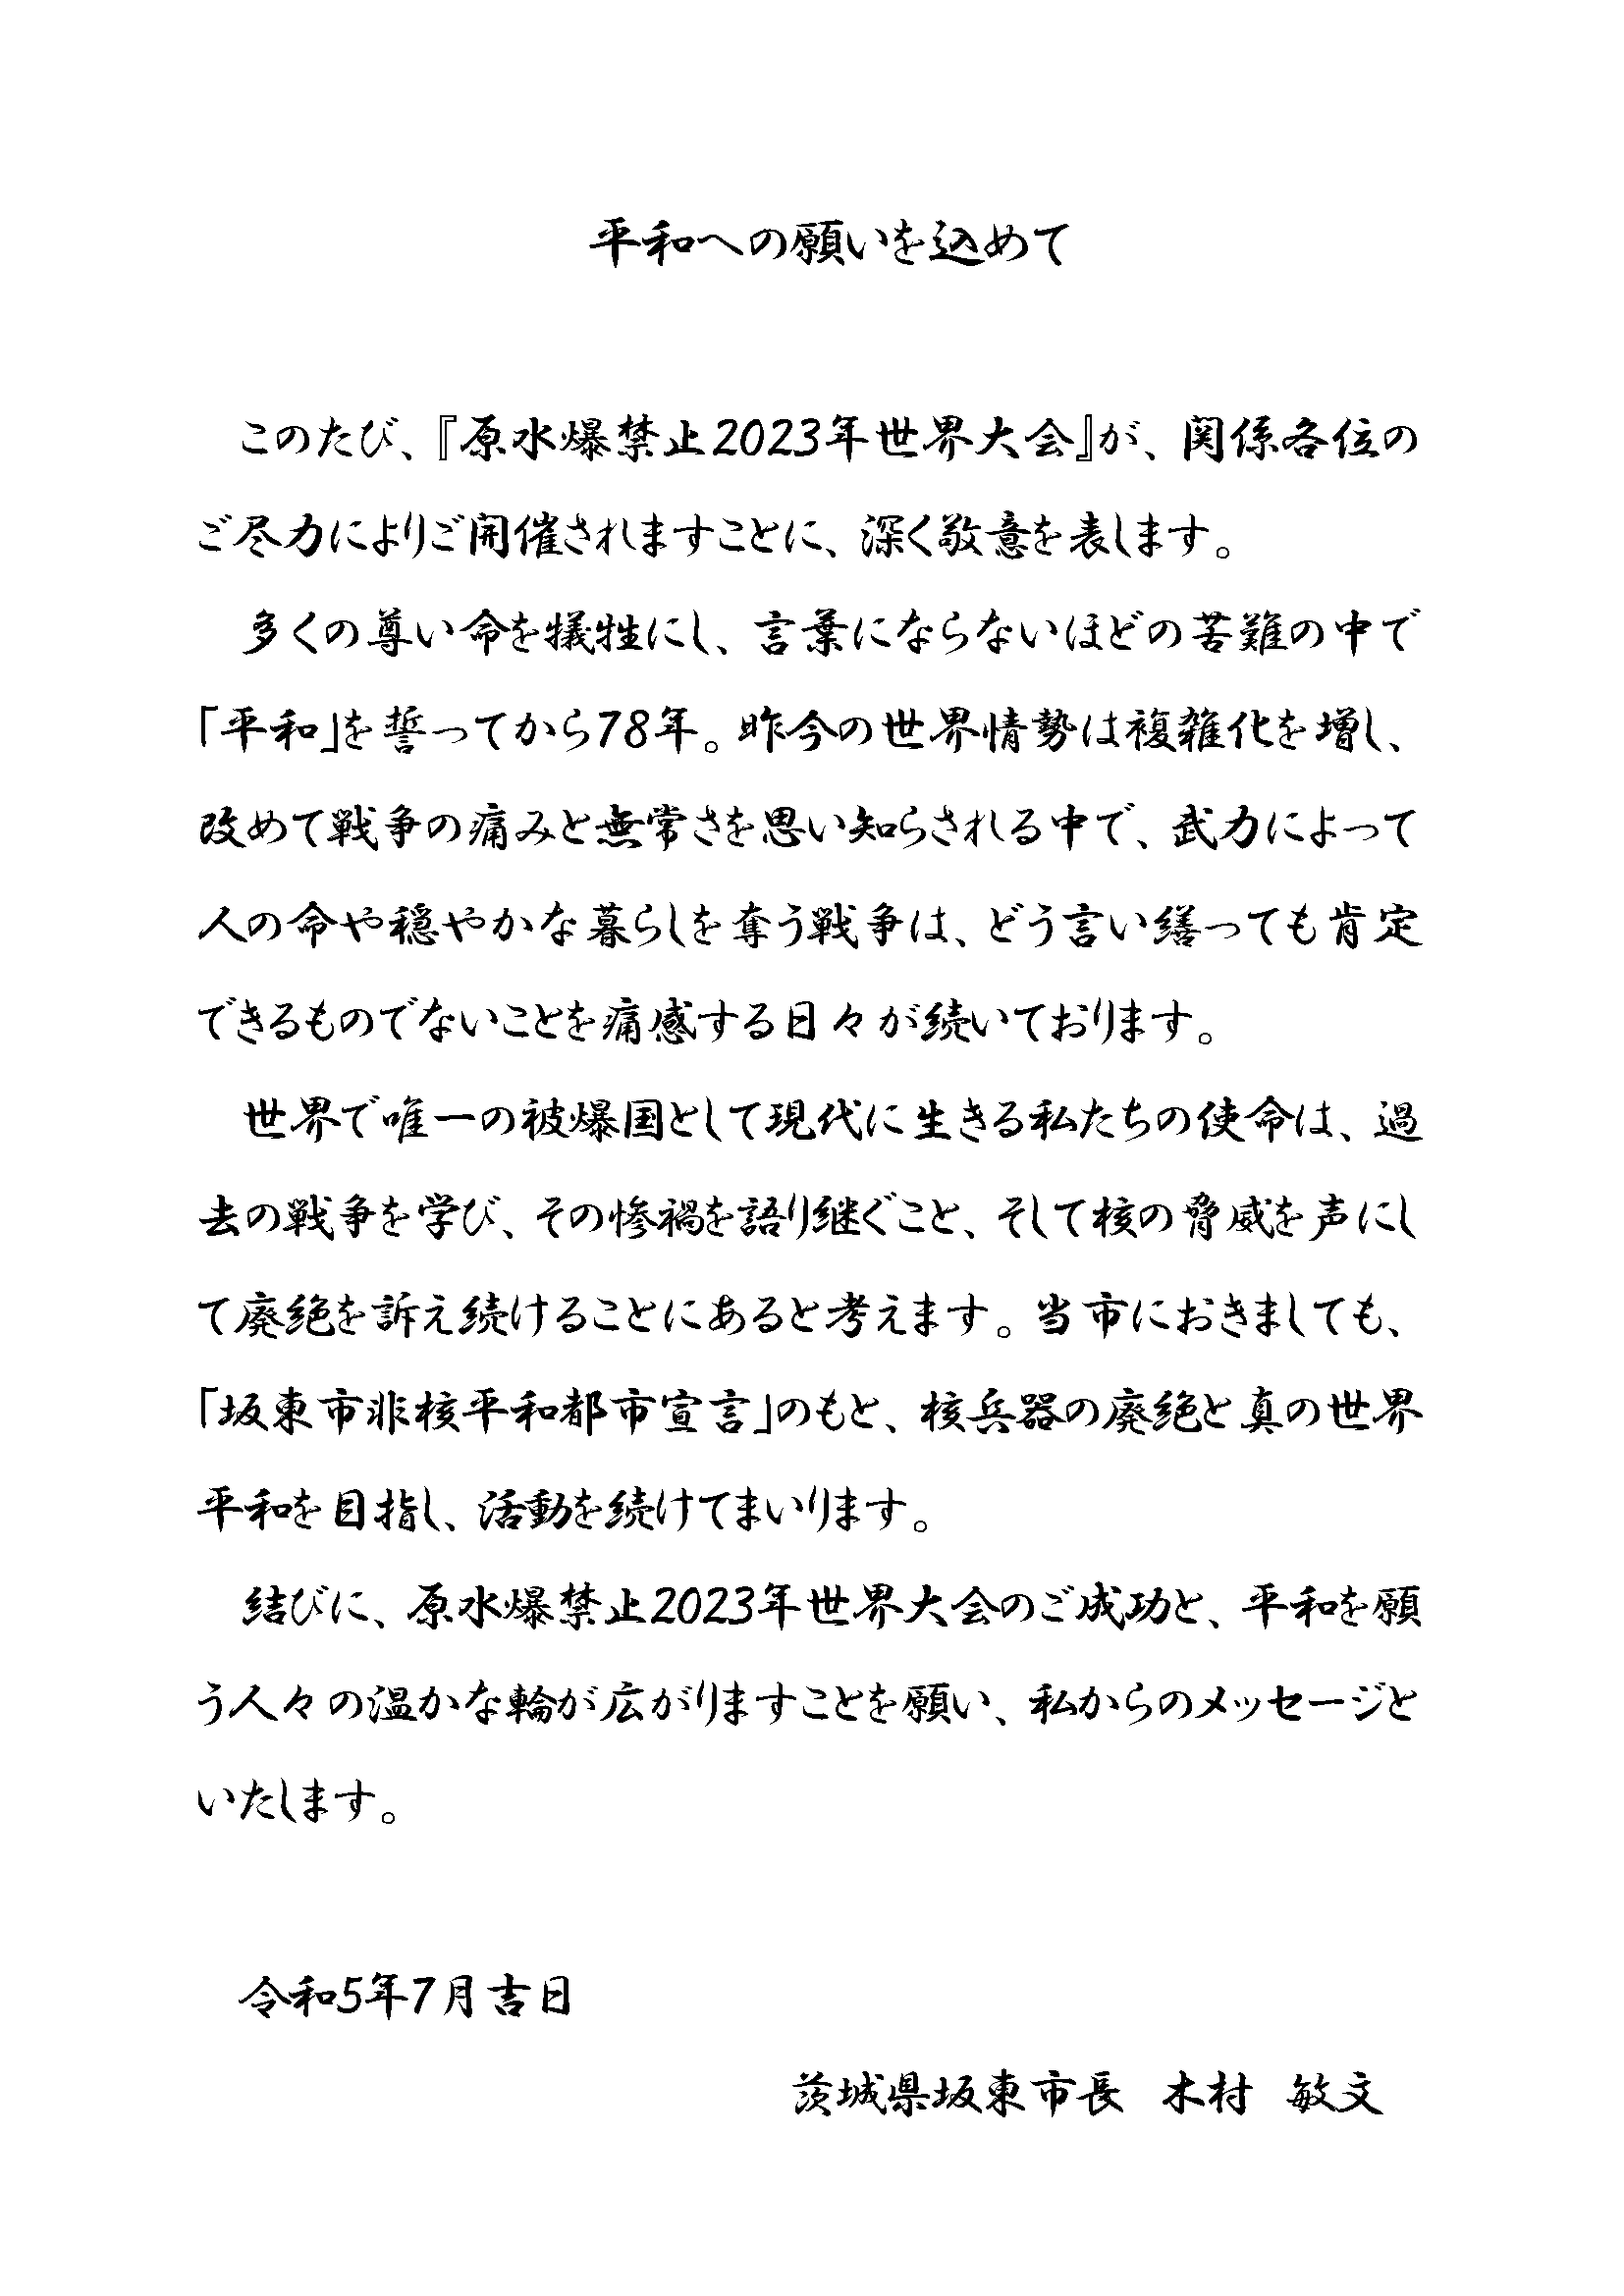 平和への願いを込めて
このたび、『原水爆禁止2023年世界大会』が、関係各位の
ご尽力によりご開催されますことに、深く敬意を表します。
多くの尊い命を犠牲にし、言葉にならないほどの苦難の中で
「平和」を誓ってから78年。昨今の世界情勢は複雑化を増し、
改めて戦争の痛みと無常さを思い知らされる中で、武力によって
人の命や穏やかな暮らしを奪う戦争は、どう言い繕っても肯定
できるものでないことを痛感する日々が続いております。
世界で唯一の被爆国として現代に生きる私たちの使命は、過
去の戦争を学び、その惨禍を語り継ぐこと、そして核の脅威を声にし
て廃絶を訴え続けることにあると考えます。当市におきましても、
「坂東市非核平和都市宣言」のもと、核兵器の廃絶と真の世界
平和を目指し、活動を続けてまいります。
結びに、原水爆禁止2023年世界大会のご成功と、平和を願
う人々の温かな輪が広がりますことを願い、私からのメッセージと
いたします。
令和5年7月吉日
茨城県坂東市長　木村　敏文